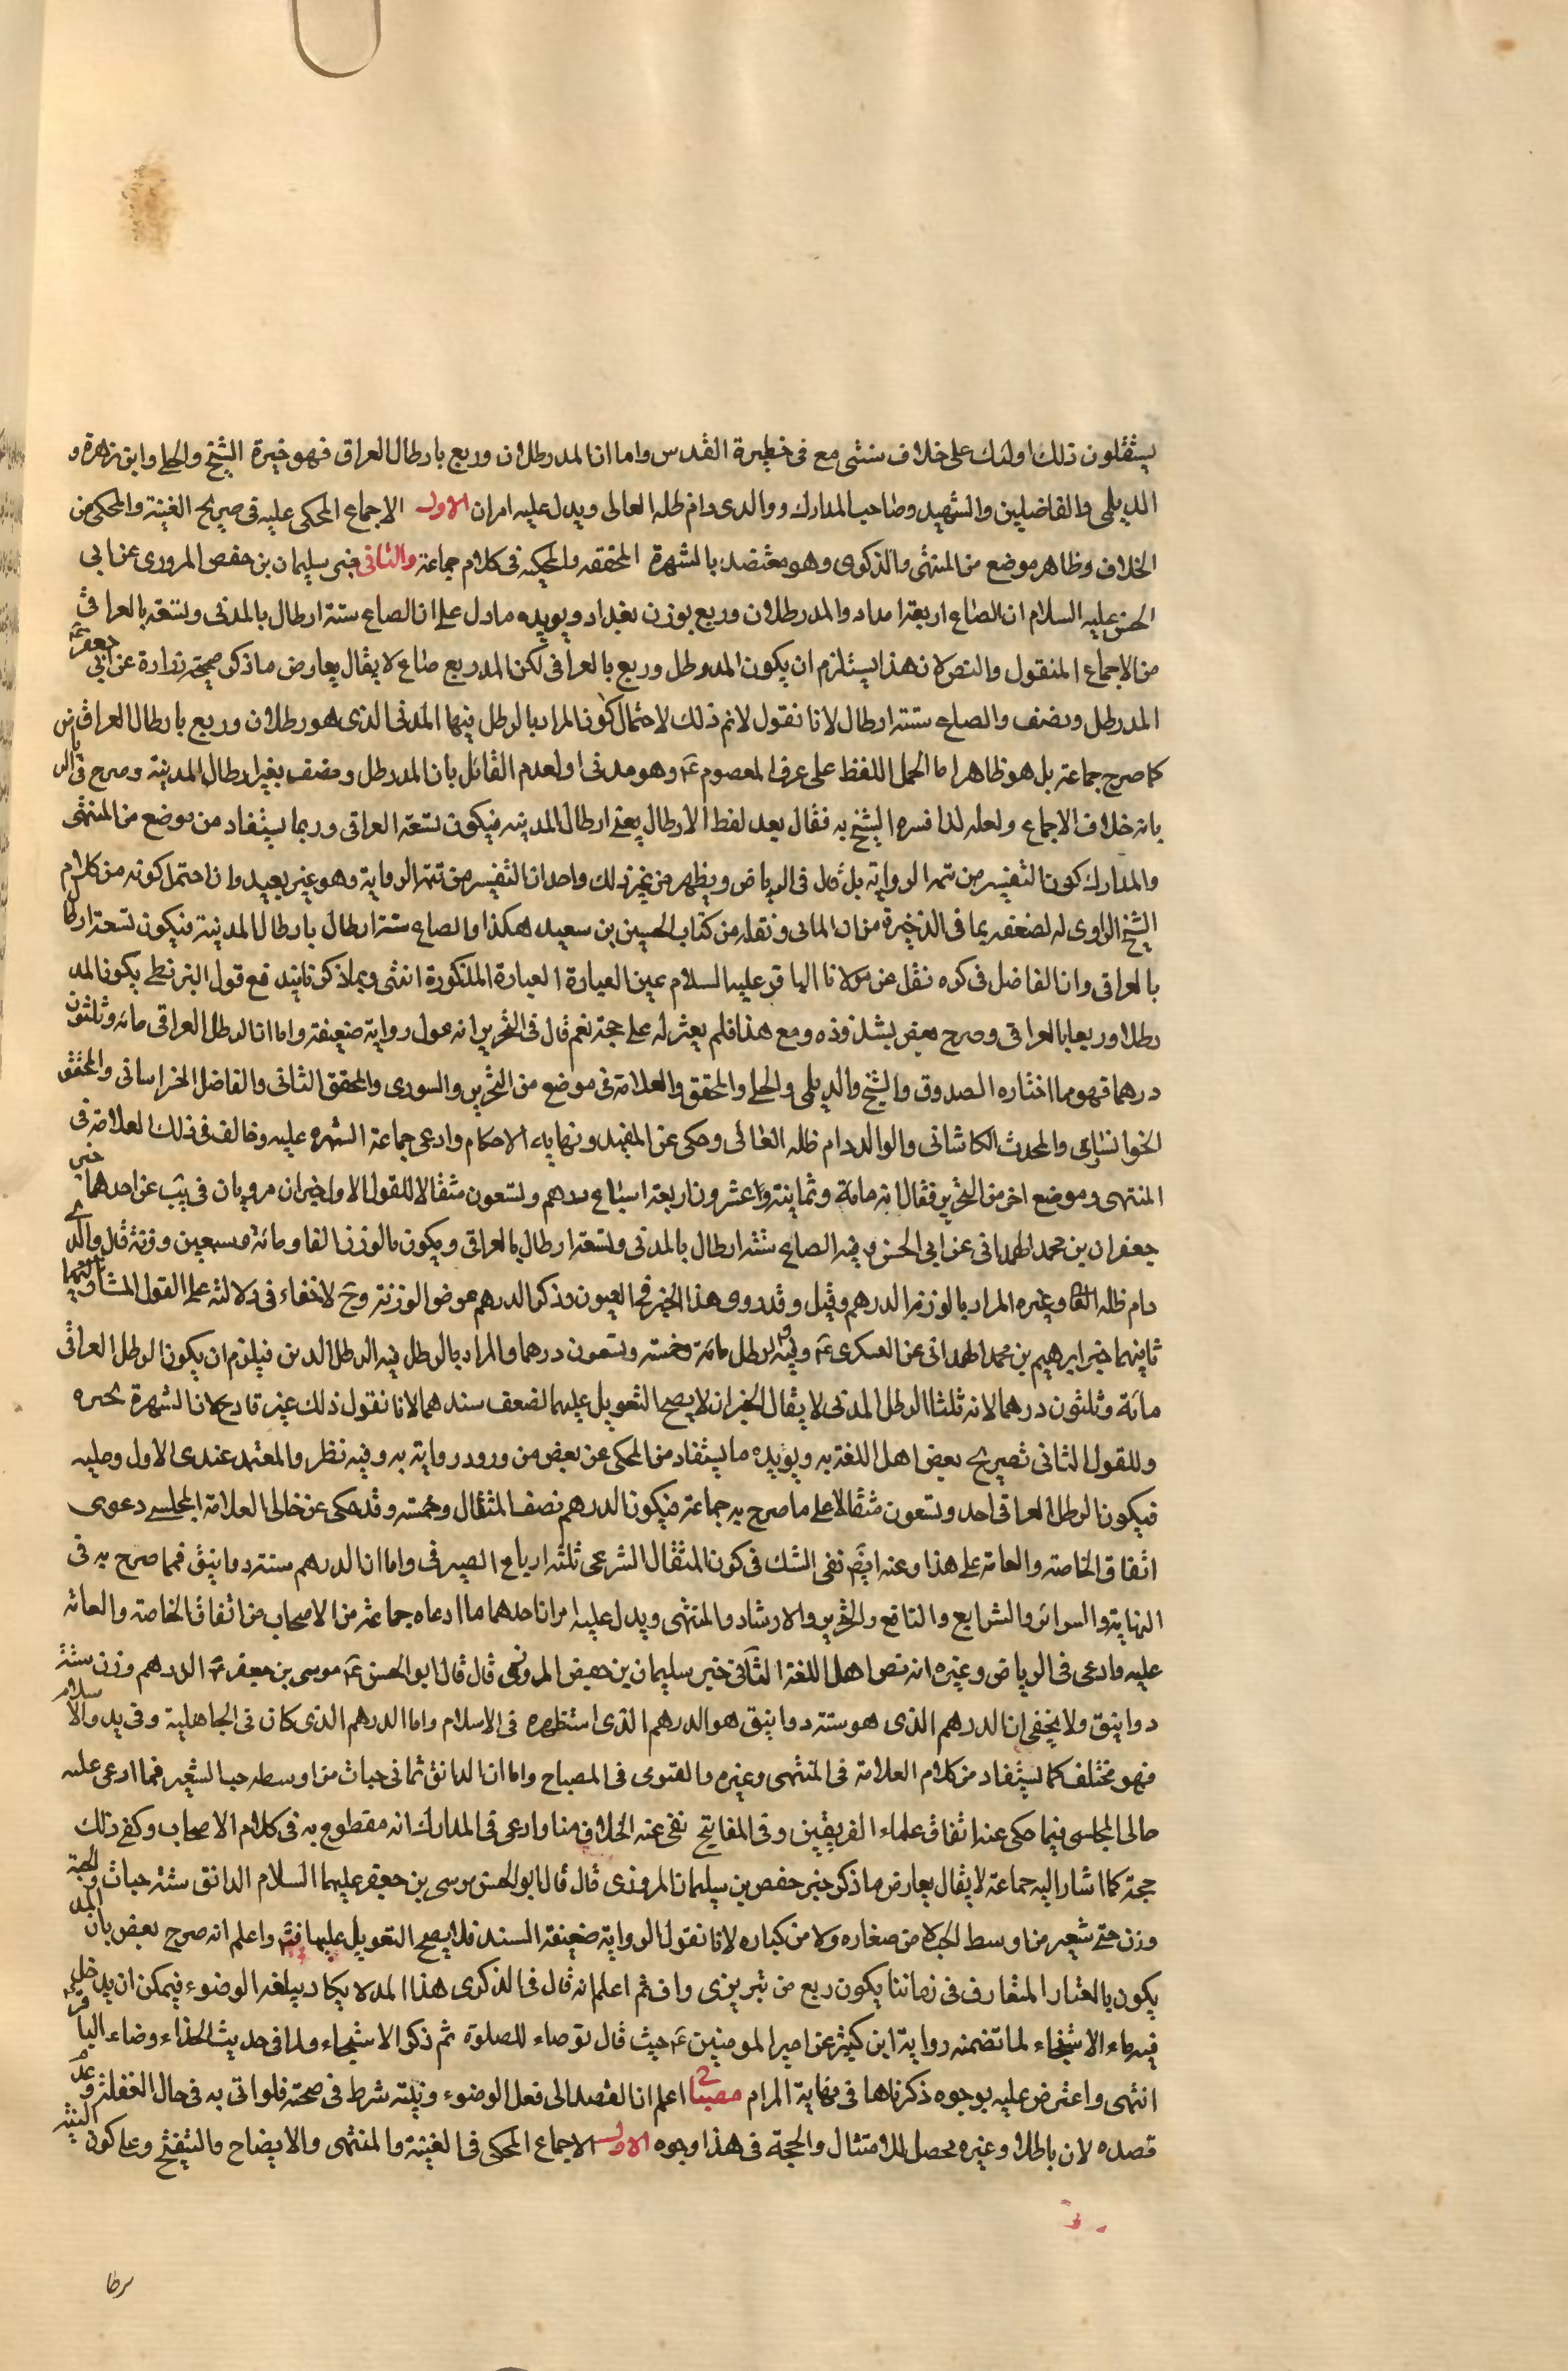 يستقلون ذلك اولئك على خلاف سنتى مع فى حظيرة القدس واما ان المد رطلان وربع بارطال العراق فهو خيرة الشيخ والحلى وابن زهرة و
الديلمى والفاضلين والشهيد وصاحب المدارك ووالدى دام ظله العالى ويدل عليه امران الاول الاجماع المحكى عليه فى صريح الغنية والمحكى من
الخلاف وظاهر موضع من المنتهى والذكرى وهو معتضد بالشهرة المحققه والمحكيه فى كلام جماعة والثانى خبر سليمان بن حفص المروزى عن ابى
الحسن عليه السلام ان الصاع اربعة امداد والمد رطلان وربع بوزن بغداد ويويده ما دل على ان الصاع ستة ارطال بالمدنى وتسعة بالعراقى
من الاجماع المنقول والنص لان هذا يستلزم ان يكون المد رطل وربع بالعراقى لكن المد ربع صاع لا يقال يعارض ما ذكر صحيحة زرارة عن ابى جعفر ع
المد رطل ونصف والصاع ستة ارطال لانا نقول لانم ذلك لاحتمال كون المراد بالرطل فيها المدنى الذى هو رطلان وربع بارطال العراق
كما صرح جماعة بل هو ظاهر اما لحمل اللفظ على عرف المعصوم ع وهو مدنى او لعدم القائل بان المد رطل ونصف بغير ارطال المدينة وصرح فى الرياض
بانه خلاف الاجماع ولعله لذا فسره الشيخ به فقال بعد لفظ الارطال يعنى ارطال المدينه فيكون تسعة العراقى وربما يستفاد من موضع من المنتهى
والمدارك كون التفسير من تتمة الرواية بل قال فى الرياض ويظهر من غير ذلك واحد ان التفسير من تتمة الرواية وهو غير بعيد وان احتمل كونه من كلام
الشيخ الراوى له لضعفه بما فى الذخيرة من ان الماتن ونقله من كتاب الحسين بن سعيد هكذا والصاع ستة ارطال بارطال المدينة فيكون تسعة ارطال
بالعراقى وان الفاضل فى كره نقل عن مولانا الباقر عليه السلام عين العبارة العبارة المذكورة انتهى وبما ذكر تايتد فع قول البزنطى بكون المد
رطلا وربعا بالعراقى وصرح بعض بشذوذه ومع هذا فلم يعثر له على حجة نعم قال فى التحرير انه عول رواية ضعيفة واما ان الرطل العراقى مائة وثلثون
درهما فهو مما اختاره الصدوق والشيخ والديلمى والحلى والمحقق والعلامة فى موضع من التحرير والسورى والمحقق الثانى والفاضل الخراسانى والمحقق
الخوانسارى والمحدث الكاشانى والوالد دام ظله العالى وحكى عن المفيد ونهاية الاحكام وادعى جماعة الشهره عليه وخالف فى ذلك العلامة فى
المنتهى وموضع اخر من التحرير فقال انه مائة وثمانية وعشرون اربعة اسباع درهم وتسعون مثقالا للقول الاول خبران مرويان فى يب عن احدهما خبر
جعفر ان بن محمد الهمدانى عن ابى الحسن ع فيه الصاع ستة ارطال بالمدنى وتسعة ارطال بالعراقى ويكون بالوزن الفا ومائة وسبعين وزنة قال والدى
دام ظله العالى وغيره المراد بالوزنة الدرهم وقيل وقد روى هذا الخبر فى العيون وذكر الدرهم عوض الوزنة وح لا خفاء فى دلالته على القول المشار
ثانيهما خبر ابرهيم بن محمد الهمدانى عن العسكرى ع وفيه الرطل مائة وخمسة وتسعون درهما والمراد بالرطل فيه الرطل المدنى فيلزم ان يكون الرطل العراقى
مائة وثلثون درهما لانه ثلثا الرطل المدنى لا يقال الخبران لا يصح التعويل عليهما لضعف سندهما لانا نقول ذلك غير قادح لان الشهرة تجبره
وللقول الثانى تصريح بعض اهل اللغة به ويؤيده ما يستفاد من المحكى عن بعض من ورود رواية به وفيه نظر والمعتمد عندى الاول وعليه
فيكون الرطل العراقى احد وتسعون مثقالا على ما صرح به جماعة فيكون الدرهم نصف المثقال وخمسه وقد حكى عن خالى العلامة المجلسى دعوى
اتفاق الخاصة والعامة على هذا وعنه ايضا نفى الشك فى كون المثقال الشرعى ثلثة ارباع الصيرفى واما ان الدرهم ستة دوانيق فمما صرح به فى
النهاية والسرائر والشرايع والنافع والتحرير والارشاد والمنتهى ويدل عليه امران احدهما ما ادعاه جماعة من الاصحاب من اتفاق الخاصة والعامة
عليه وادعى فى الرياض وغيره انه نص اهل اللغة الثانى خبر سليمان بن حفص المروزى قال قال ابو الحسن ع موسى بن جعفر ع الدرهم وزن ستة
دوانيق ولا يخفى ان الدرهم الذى هو ستة دوانيق هو الدرهم الذى استظهره فى الاسلام واما الدرهم الذى كان فى الجاهلية وفى بدو الاسلام
فهو مختلف كما يستفاد من كلام العلامة فى المنتهى وغيره والفتوى فى المصباح واما ان الدانق ثمانى حبات من اوسط حب الشعير فمما ادعى عليه
خالى المجلسى فيما حكى عنه اتفاق علماء الفريقين وفى المفاتيح نفى عنه الخلاف منا وادعى فى المدارك انه مقطوع به فى كلام الاصحاب وكفى ذلك
حجة كما اشار اليه جماعة لا يقال يعارض ما ذكر خبر حفص بن سليمان المروزى قال قال ابو الحسن موسى بن جعفر عليهما السلام الدانق ستة حبات والحبة
وزن حبتى شعير من اوسط الحب لا من صغاره ولا من كباره لانا نقول الرواية ضعيفة السند فلا يصح التعويل عليها فتم واعلم انه صرح بعض بان المد
يكون بالعتار المتعارف فى زماننا يكون ربع من تبريزى وافى ثم اعلم انه قال فى الذكرى هذا المد لا يكاد يبلغه الوضوء فيمكن ان يدخل
فيه ماء الاستنجاء لما تضمنه رواية ابن كثير عن امير المومنين ع حيث قال توضاء للصلوة ثم ذكر الاستنجاء ولما فى حديث الحذاء وضاء الباقر ع
انتهى واعترض عليه بوجوه ذكرناها فى نهاية المرام مصباح اعلم ان القصد الى فعل الوضوء ونيته شرط فى صحته فلو اتى به فى حال الغفلة وعدم
قصده لان باطلا وغيره محصل للامتثال والحجة فى هذا وجوه الاول الاجماع المحكى فى الغنية والمنتهى والايضاح والتنقيح وعلى كون النية